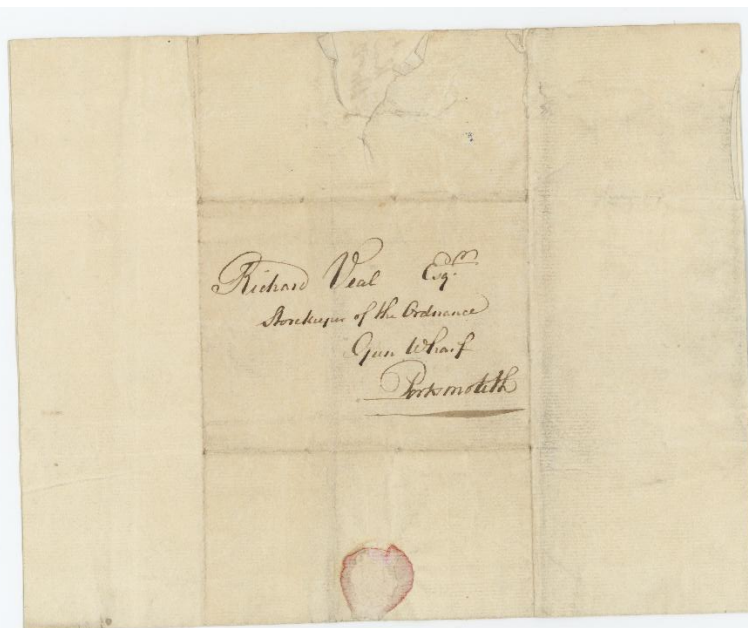 Richard Veal Esqr.
Storekeeper of the Ordnance
Gun Wharf
Portsmouth